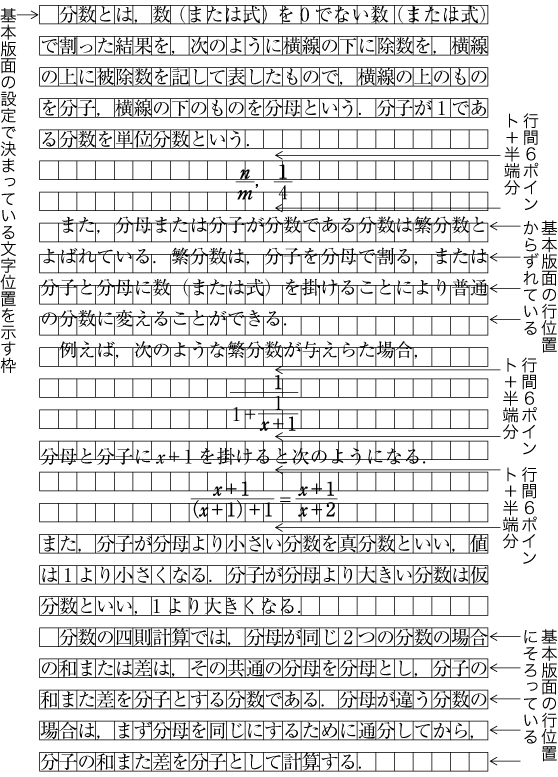 基本版面の設定で決まっている文字位置を示す枠
分数とは，数（または式）を0でない数（または式）
で割った結果を，次のように横線の下に除数を，横線
の上に被除数を記して表したもので，横線の上のもの
を分子，横線の下のものを分母という．分子が1であ
る分数を単位分数という．
行間6ポイン
ト＋半端分
n/m, 1/4
また，分母または分子が分数である分数は繁分数と
よばれている．繁分数は，分子を分母で割る，または
分子と分母に数（または式）を掛けることにより普通
の分数に変えることができる．
基本版面の行位置
からずれている
例えば，次のような繁分数が与えらた場合，
行間6ポイン
ト＋半端分
1
1+ 1/x+1
分母と分子にx+1を掛けると次のようになる．
行間6ポイン
ト＋半端分
x+1/(x+1)+1 = x+1/x+2
また，分子が分母より小さい分数を真分数といい，値
は1より小さくなる．分子が分母より大きい分数は仮
分数といい，1より大きくなる．
分数の四則計算では，分母が同じ2つの分数の場合
の和または差は，その共通の分母を分母とし，分子の
和また差を分子とする分数である．分母が違う分数の
場合は，まず分母を同じにするために通分してから，
分子の和また差を分子として計算する．
基本版面の行位置
にそろっている